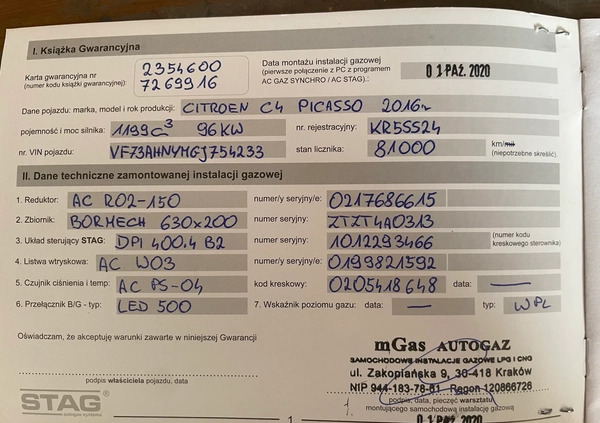 I. Książka Gwarancyjna
Karta gwarancyjna nr
(numer kodu książki gwarancyjnej):
2354600
7269916
Data montażu instalacji gazowej
(pierwsze połączenie z PC z programem
AC GAZ SYNCHRO / AC STAG):
01 PAŹ. 2020
Dane pojazdu: marka, model i rok produkcji: CITROEN C4 PICASSO 2016r
pojemność i moc silnika: 1199c³ 96KW nr. rejestracyjny: KR5SS24
nr. VIN pojazdu: VF73AHNYMGJ754233 stan licznika: 81000 km/mil
(niepotrzebne skreślić).
II. Dane techniczne zamontowanej instalacji gazowej
1. Reduktor: AC R02-150 numer/y seryjny/e: 0217686615
2. Zbiornik: BORMECH 630x200 numer seryjny: ZTZT4A0313
3. Układ sterujący STAG: DPI 400.4 B2 numer seryjny: 1012293466 (numer kodu
kreskowego sterownika)
4. Listwa wtryskowa: AC W03 numer/y seryjny/e: 0199821592
5. Czujnik ciśnienia i temp: AC PS-04 kod kreskowy: 0205418648 data: —
6. Przełącznik B/G - typ: LED 500 7. Wskaźnik poziomu gazu: data: — typ: WPL
Oświadczam, że akceptuję warunki zawarte w niniejszej Gwarancji
mGas AUTOGAZ
SAMOCHODOWE INSTALACJE GAZOWE LPG I CNG
ul. Zakopiańska 9, 30-418 Kraków
NIP 944-183-78-81 Regon 120866726
podpis właściciela pojazdu, data
podpis, data, pieczęć warsztatu
montującego samochodową instalację gazową
STAG®
autogas systems
1
01 PAŹ 2020